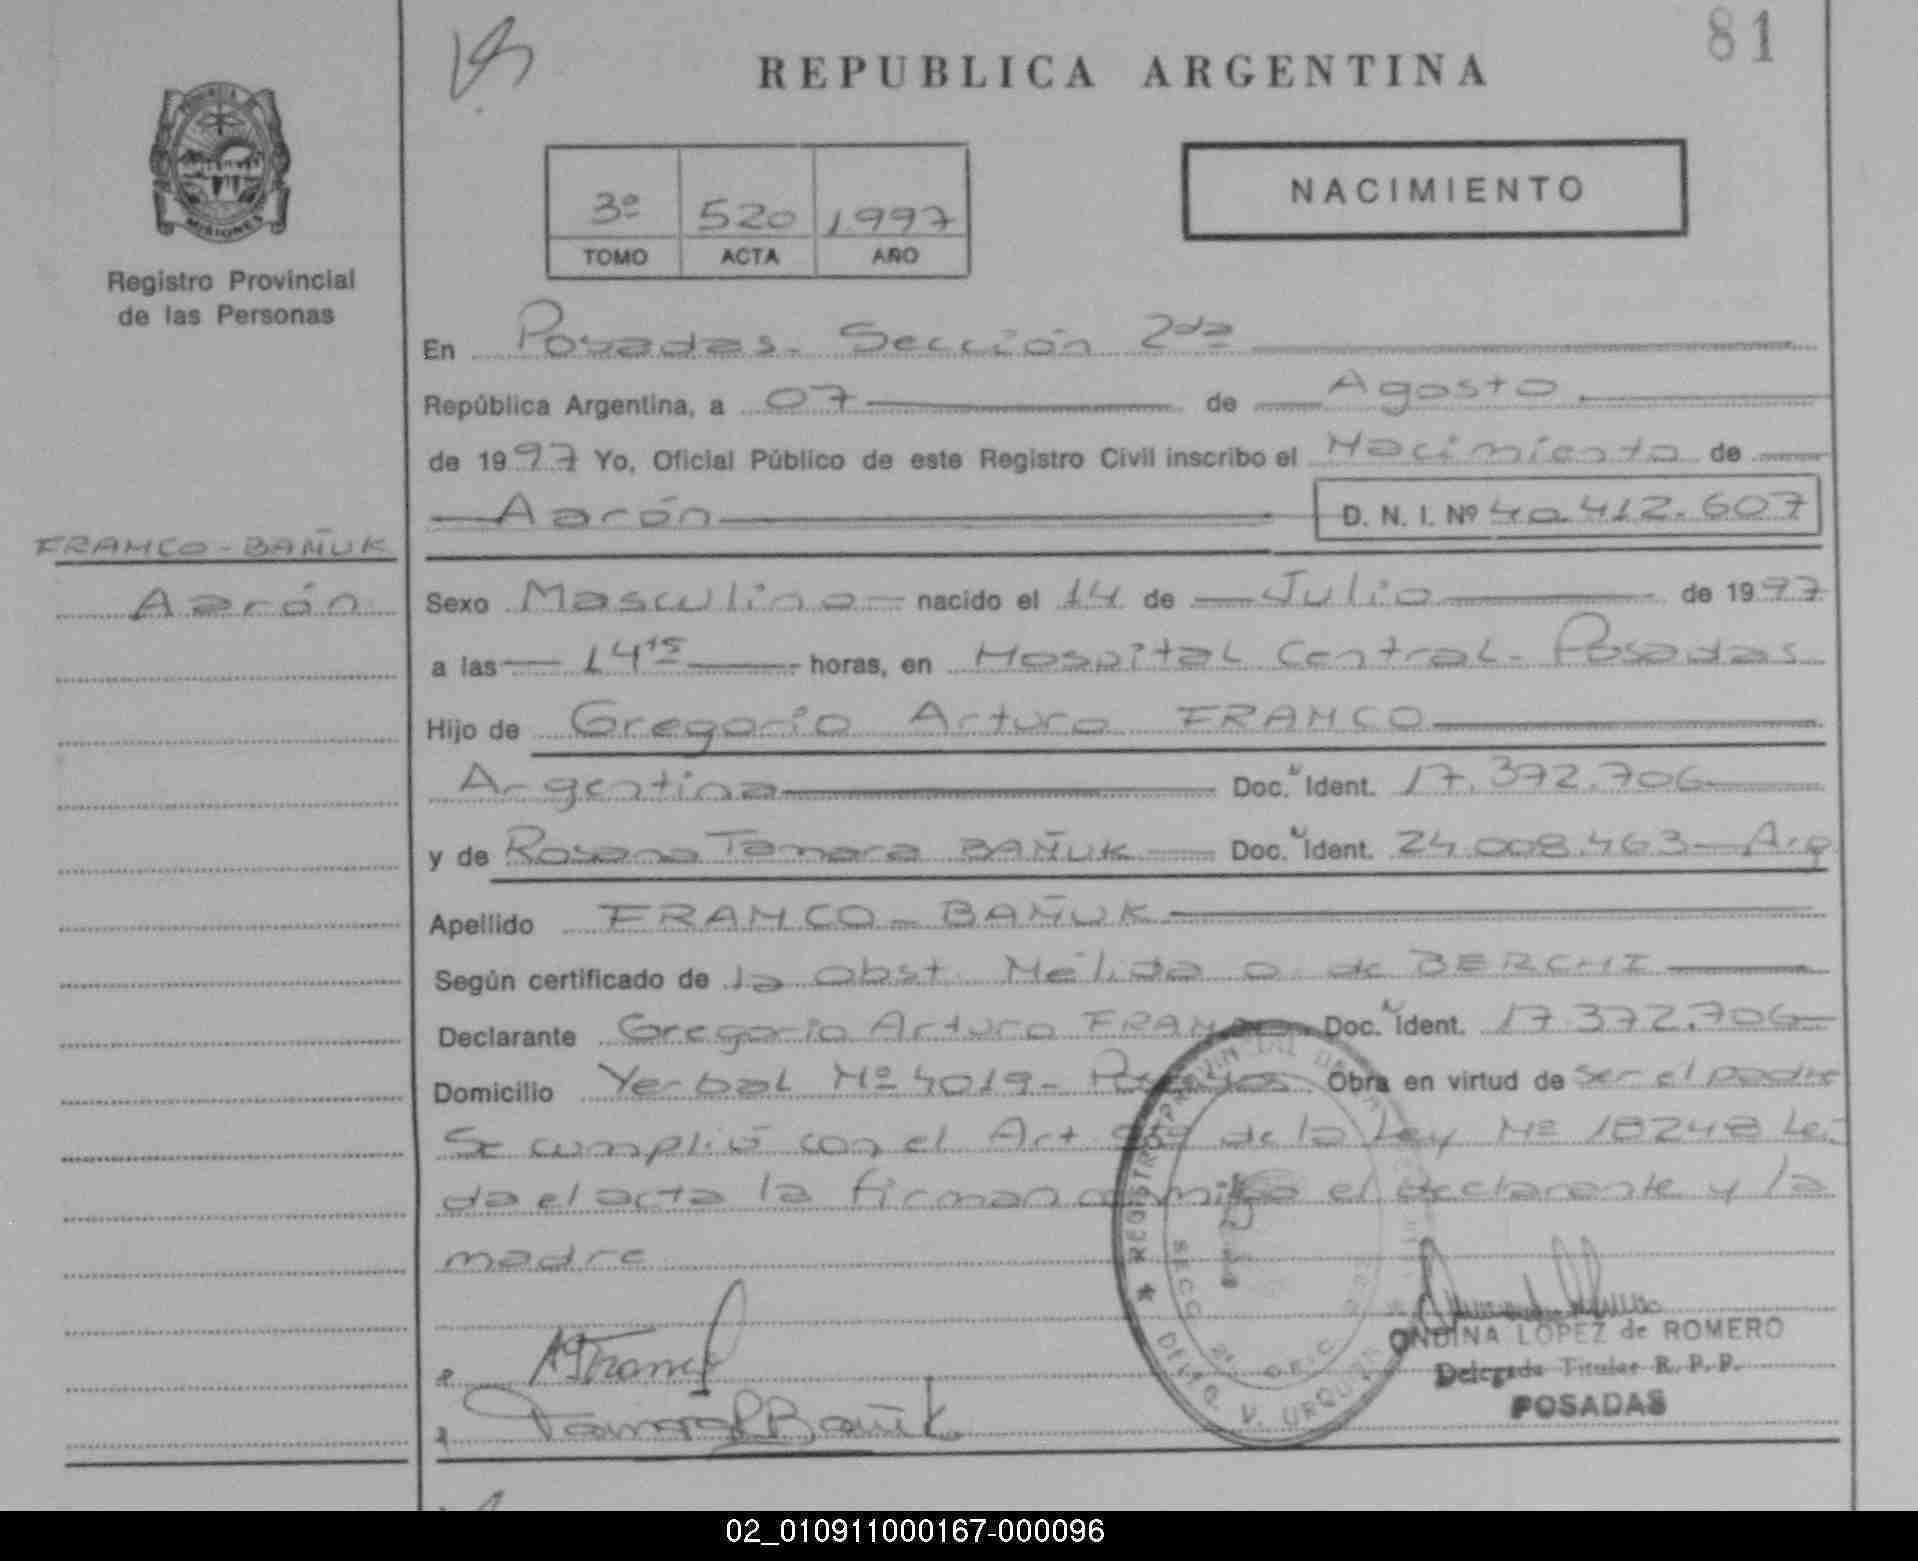 81
REPUBLICA ARGENTINA
MISIONES
Registro Provincial
de las Personas
3º 520 1997
TOMO ACTA AÑO
NACIMIENTO
En Posadas - Sección 2da
República Argentina, a 07 de Agosto
de 1997 Yo, Oficial Público de este Registro Civil inscribo el Nacimiento de
Aarón D. N. I. Nº 40.412.607
FRANCO - BAÑUK
Aarón
Sexo Masculino nacido el 14 de Julio de 1997
a las 14 15 horas, en Hospital Central - Posadas
Hijo de Gregorio Arturo FRANCO
Argentina Doc. Ident. 17.372.706
y de Rosana Tamara BAÑUK Doc. Ident. 24.008.463 - Arg
Apellido FRANCO - BAÑUK
Según certificado de la obst. Nélida O. de BERCHI
Declarante Gregorio Arturo FRANCO Doc. Ident. 17.372.706
Domicilio Yerbal Nº 4019 - Posadas Obra en virtud de ser el padre
Se cumplió con el Art de la Ley Nº 18248 Leí
da el acta la firman conmigo el declarante y la
madre
REGISTRO PROVINCIAL DE LAS
SECC. 2ª
DELEG. V. URQUIZA
ONDINA LOPEZ de ROMERO
Delegada Titular R. P. P.
POSADAS
Tamara Bañuk
02_010911000167-000096